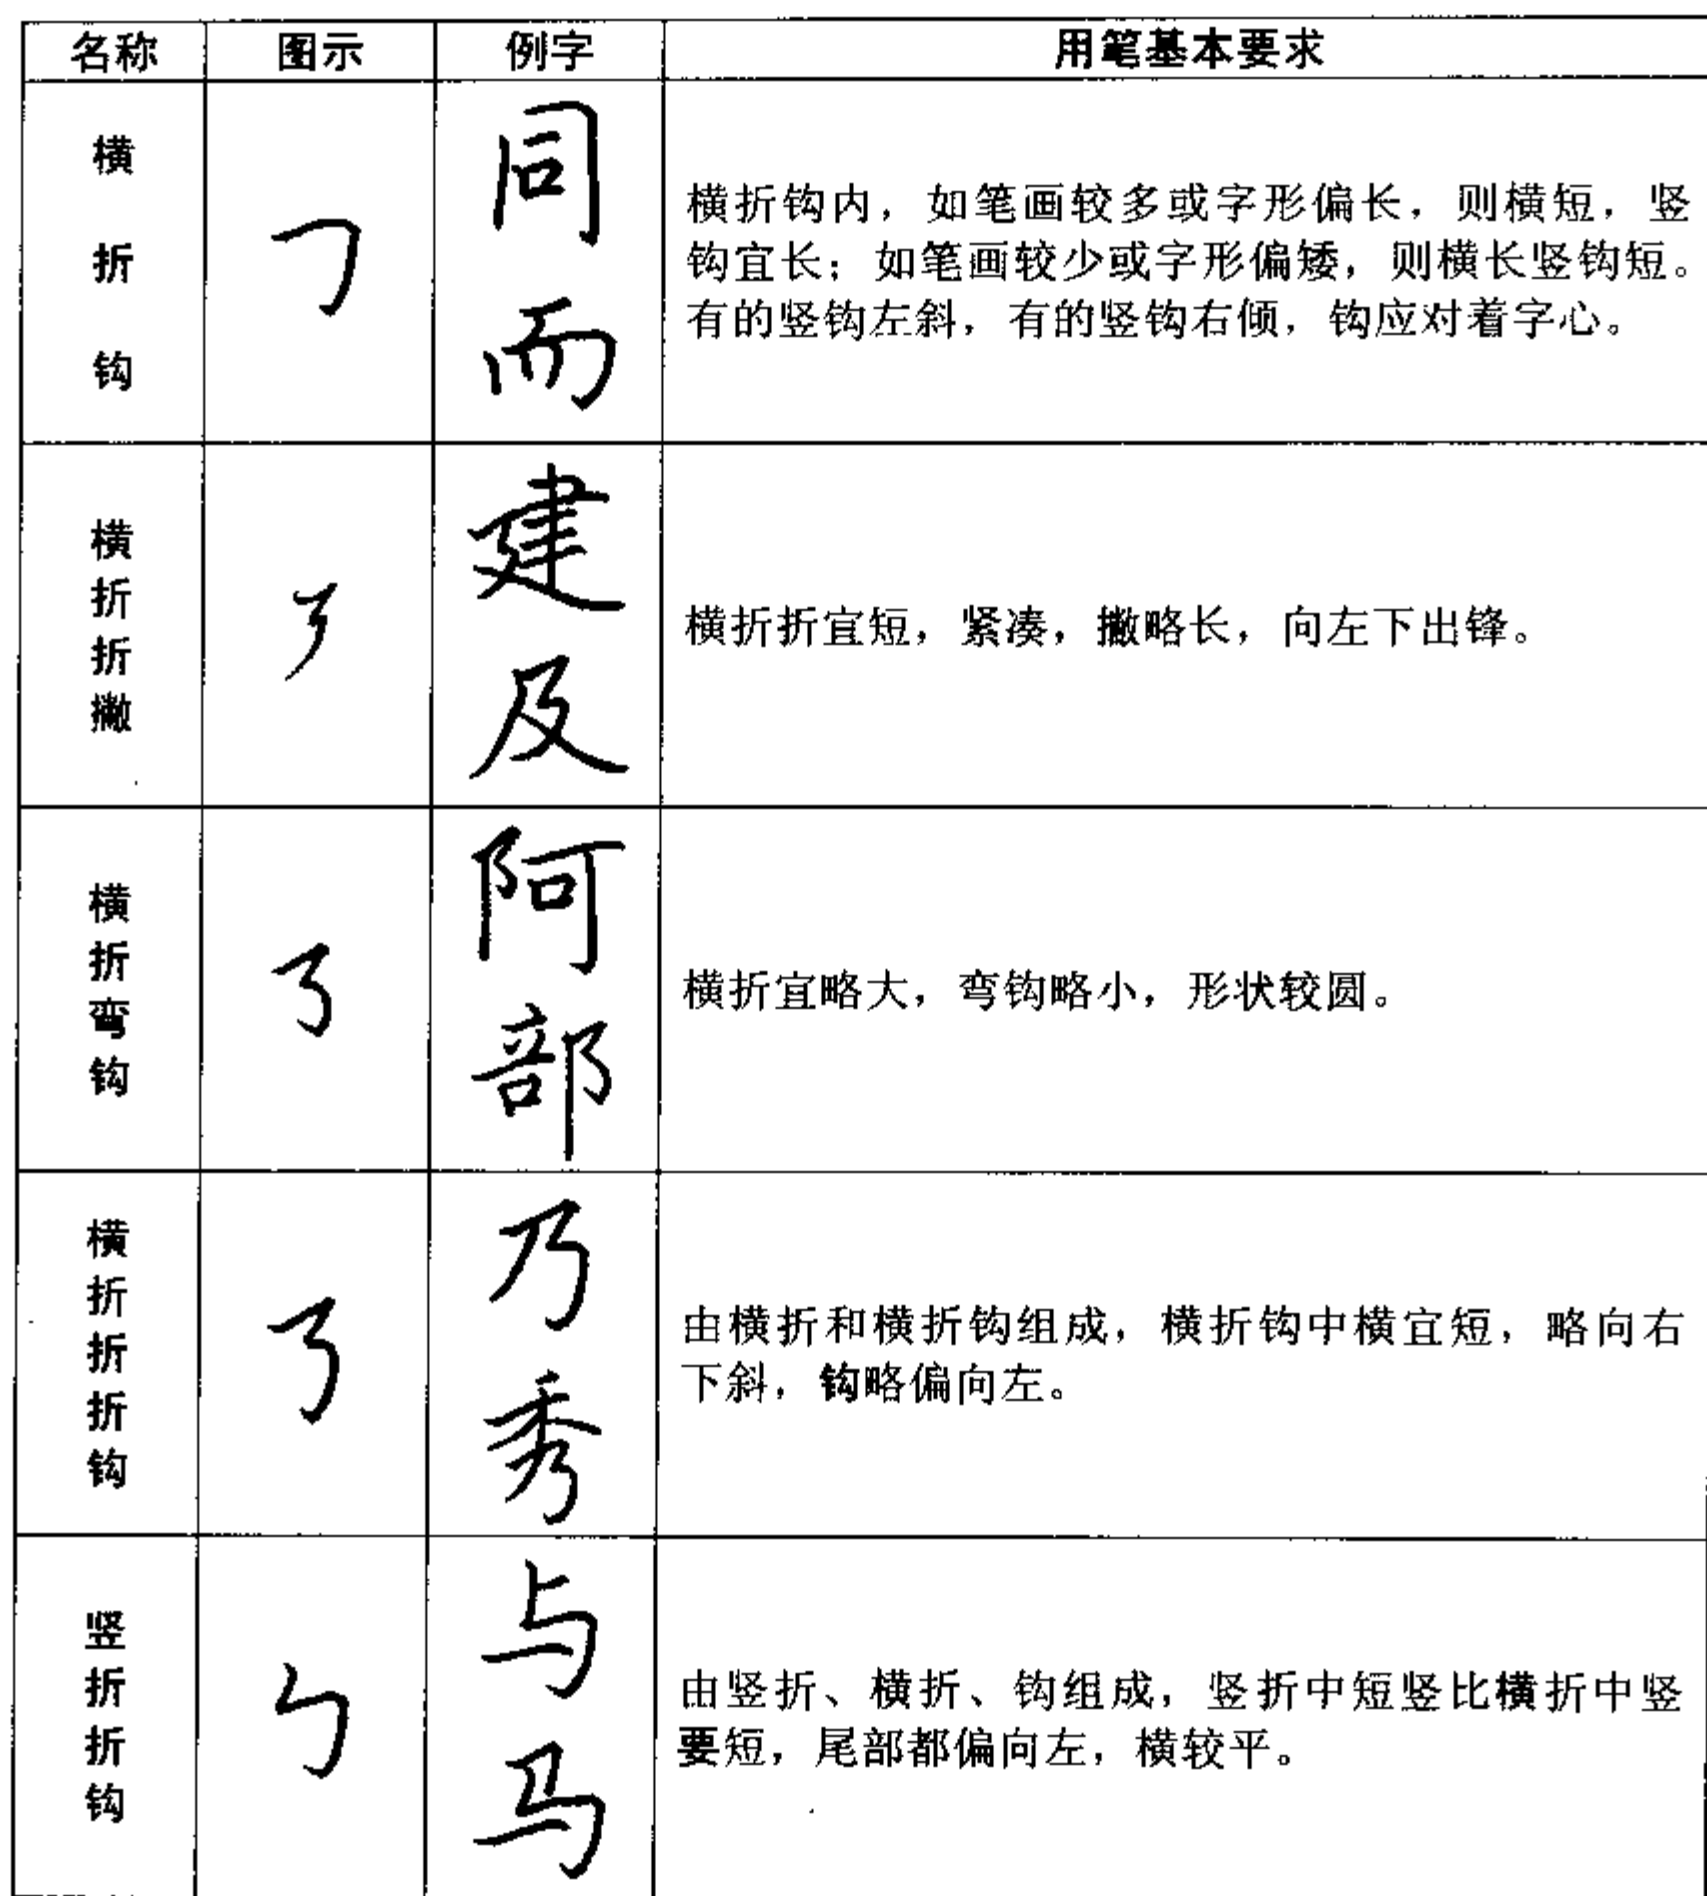 名称 图示 例字 用笔基本要求
横折钩 𠃌 同而
横折钩内，如笔画较多或字形偏长，则横短，竖
钩宜长；如笔画较少或字形偏矮，则横长竖钩短。
有的竖钩左斜，有的竖钩右倾，钩应对着字心。
横折折撇 ㇋ 建及
横折折宜短，紧凑，撇略长，向左下出锋。
横折弯钩 ㇌ 阿部
横折宜略大，弯钩略小，形状较圆。
横折折折钩 ㇡ 乃秀
由横折和横折钩组成，横折钩中横宜短，略向右
下斜，钩略偏向左。
竖折折钩 ㇉ 与马
由竖折、横折、钩组成，竖折中短竖比横折中竖
要短，尾部都偏向左，横较平。